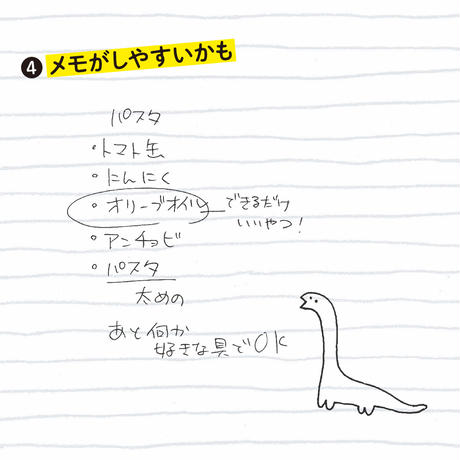 ❹ メモがしやすいかも
パスタ
・トマト缶
・にんにく
・オリーブオイル
できるだけ
いいやつ！
・アンチョビ
・パスタ
太めの
あと何か
好きな具でOK